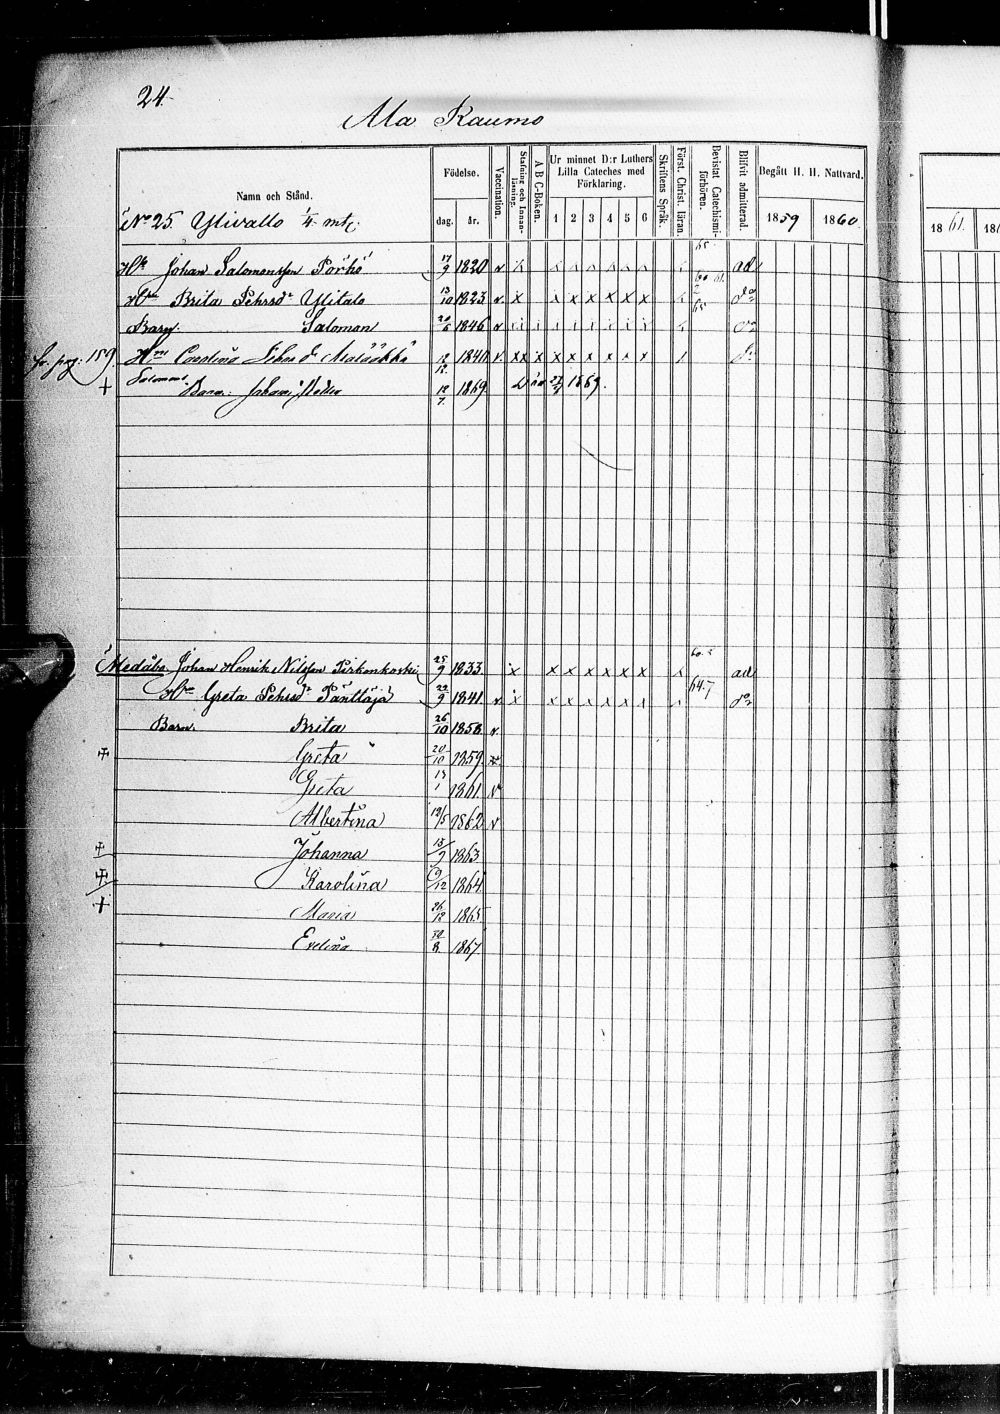 24.
Ala Raumo
Namn och Stånd. Födelse. dag. år. Vaccination. Stafning och Innanläsning. A B C-Boken. Ur minnet D:r Luthers Lilla Cateches med Förklaring. 1 2 3 4 5 6 Skriftens Språk. Först. Christ. läran. Bevistat Catechismiförhören. Blifvit admitterad. Begått H. H. Nattvard. 1859 1860 1861. 18
No 25. Ylivallo 1/4 mtl.
Johan Salomonsson Pörhö 17/9 1820 v x 65 ad
Brita Pehrsdr Ylitalo 13/10 1823 v. x x x x x x x do
Barn: Salomon 20/6 1846 v 65 do
fr. pag: 159. Hru Carolina Johns dr 12/12 1840 v. x x x x x x x x x
Salomons Barn: Johan 12/7 1869.
Medåbo Johan Henrik Nilsson Pirkonkoski 25/9 1833 x x x x x x x x ad
Hru Greta Pehrsdr Panttäjä 22/9 1841. v x x x x x x x 64.7 do
Barn: Brita 26/10 1858 v.
Greta 20/10 1859. v.
Greta 13/1 1861. v
Albertina 12/5 1862 v
Johanna 15/9 1863
Karolina 9/12 1864
Maria 26/12 1865
Evelina 30/8. 1867.